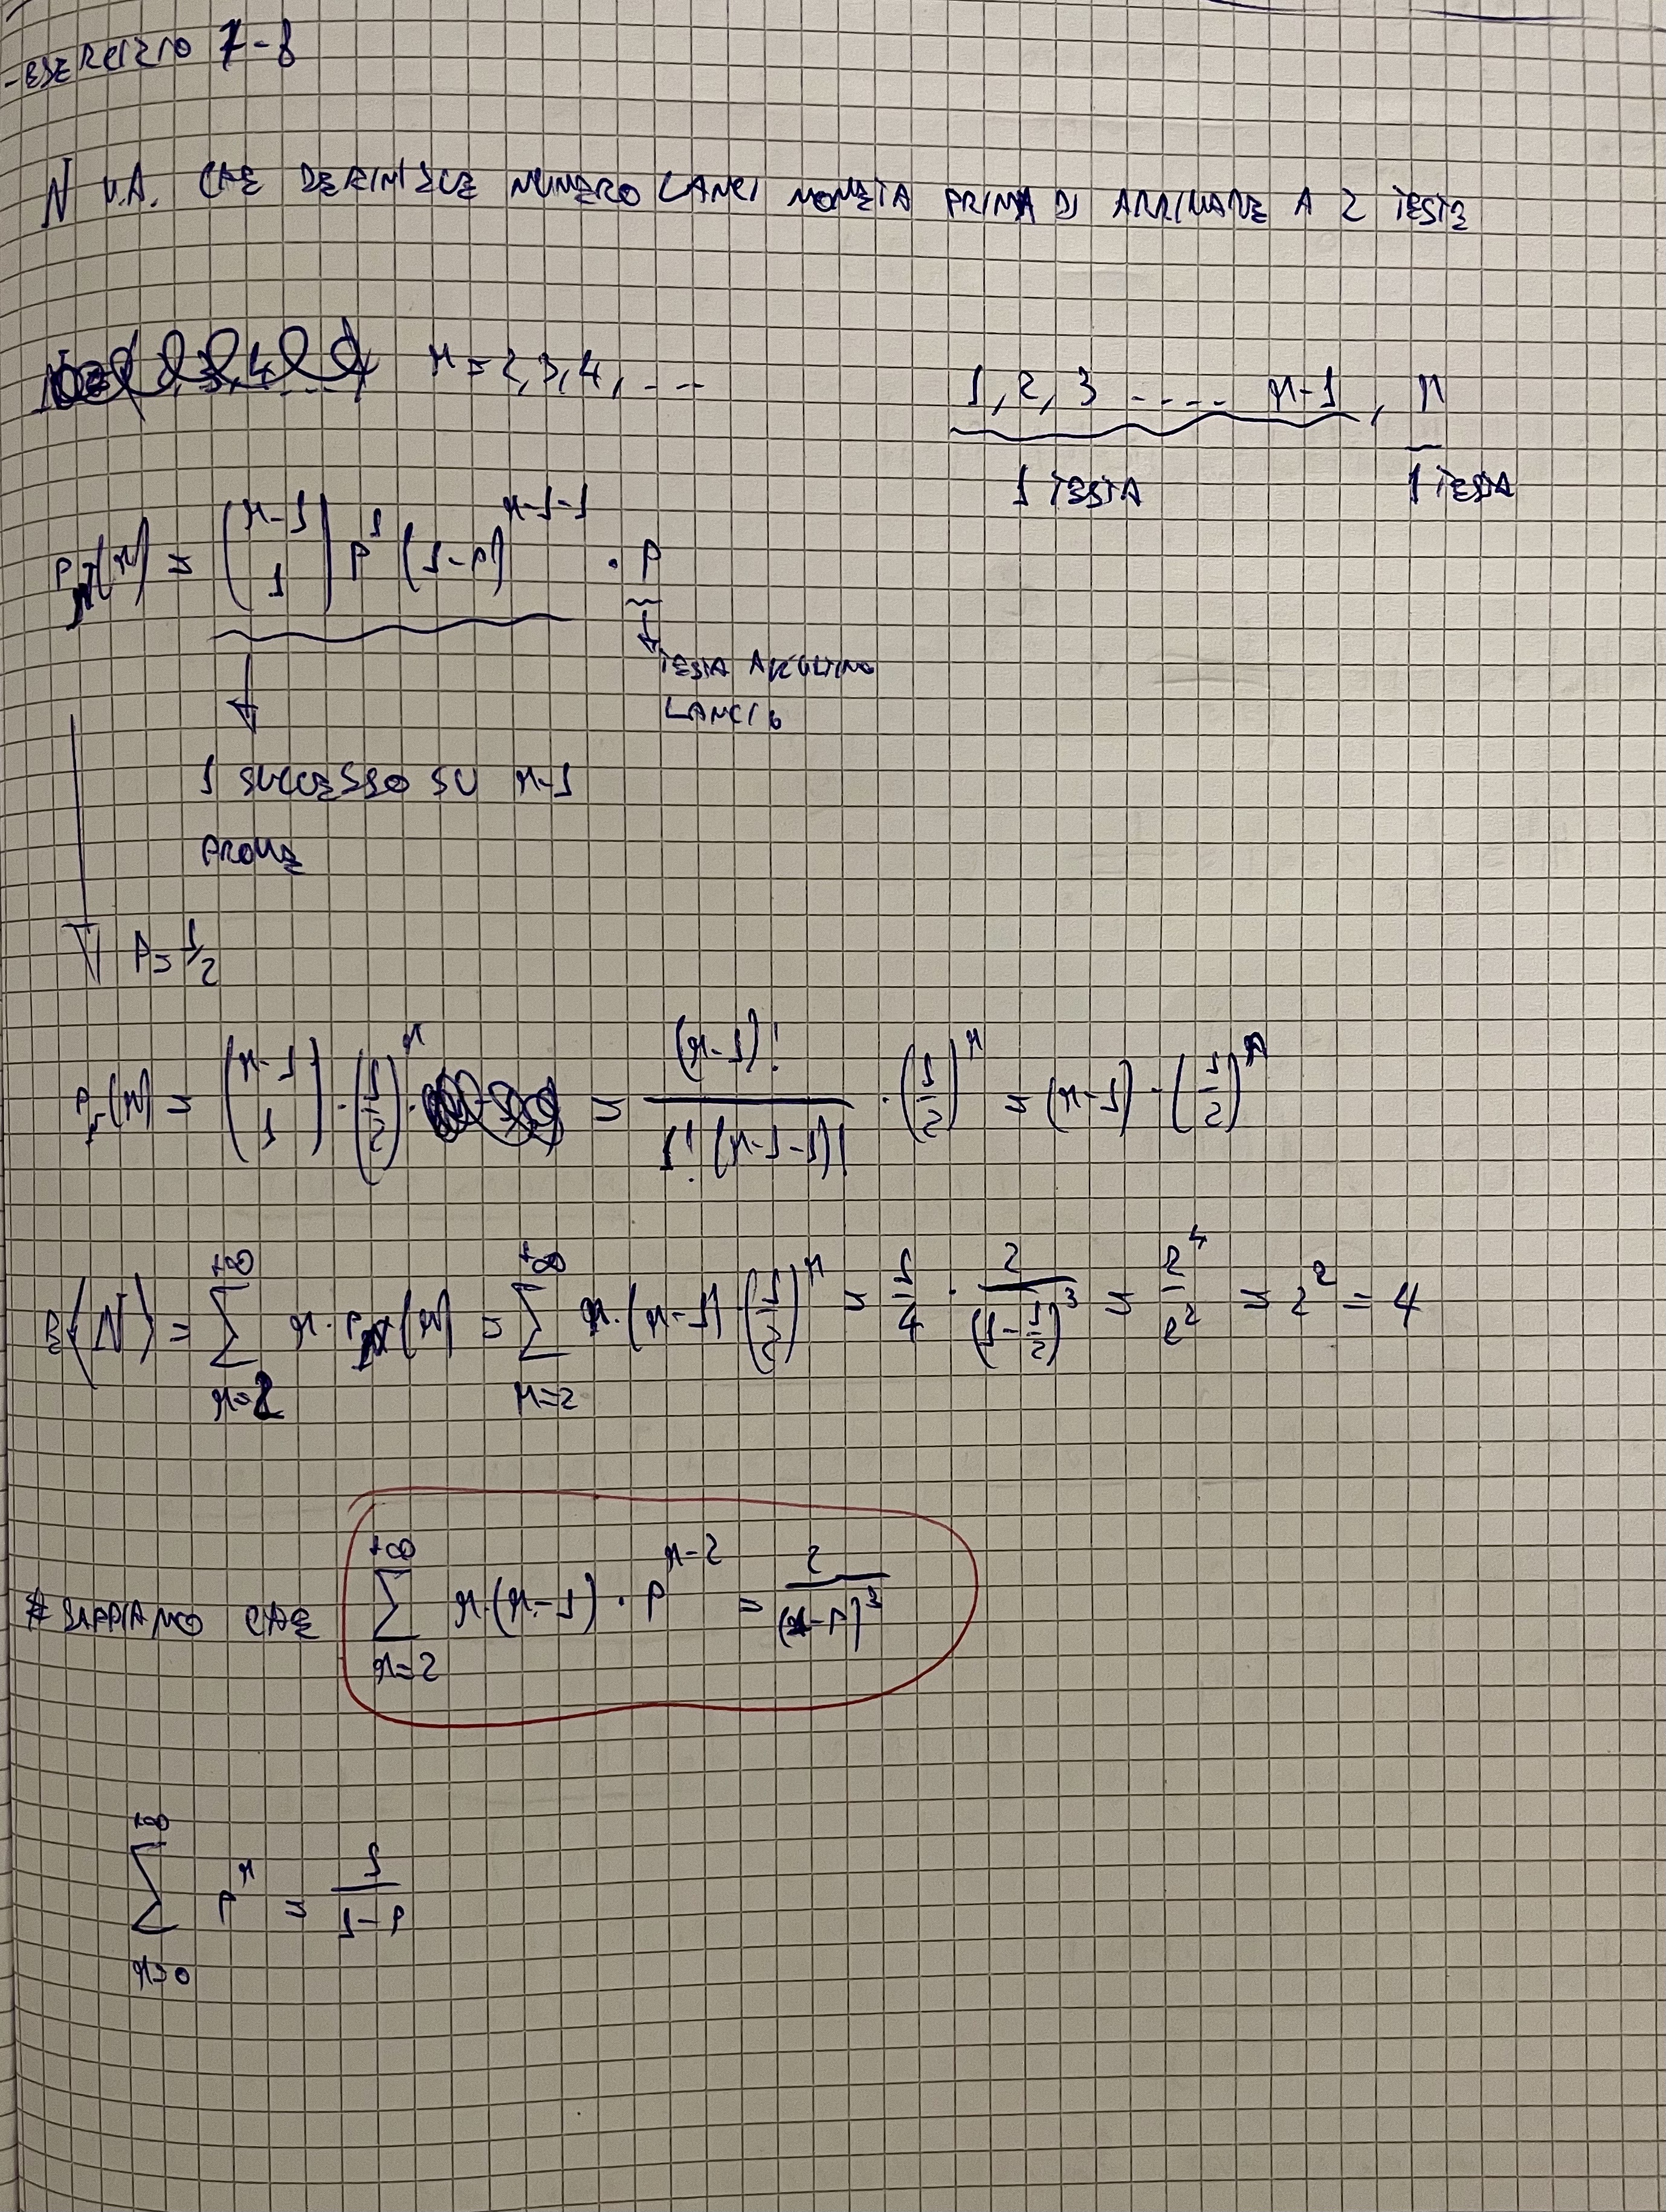 - ESERCIZIO 7-8
N V.A. CHE DEFINISCE NUMERO LANCI MONETA PRIMA DI ARRIVARE A 2 TESTE
n = 2, 3, 4, ...
1, 2, 3 .... n-1, n
1 TESTA 1 TESTA
P_N(n) = (n-1 1) p^1 (1-p)^(n-1-1) · p
TESTA ALL'ULTIMO
LANCIO
1 SUCCESSO SU n-1
PROVE
P = 1/2
P_N(n) = (n-1 1) · (1/2)^n · = (n-1)! / 1! (n-1-1)! · (1/2)^n = (n-1) · (1/2)^n
E(N) = Σ_{n=2}^{+∞} n · P_N(n) = Σ_{n=2}^{+∞} n · (n-1) (1/2)^n = 1/4 · 2/(1-1/2)^3 = 2^4/2^2 = 2^2 = 4
# SAPPIAMO CHE Σ_{n=2}^{+∞} n · (n-1) · p^(n-2) = 2/(1-p)^3
Σ_{n=0}^{+∞} p^n = 1/(1-p)